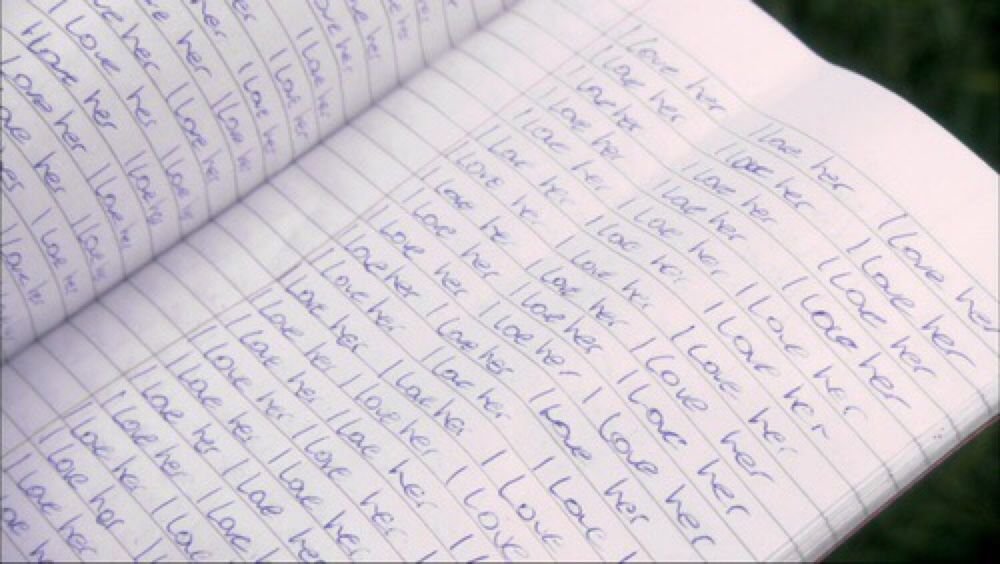 love her
I love her
I love her I love her
I love her I love her
I love her I love her
love her I love her
her I love her
her I love her
I love her
I love her
love her
her
I love her I love her I love her
I love her I love her I love her
I love her I love her I love her
I love her I love her I love her
I love her I love her I love her
I love her I love her I love her
I love her I love her I love her
I love her I love her I love her
I love her I love her I love her
I love her I love her I love her
I love her I love her I love her
I love her I love her I love
I love her I love her I
I love her I love her I
I love her I love her
I love her I love her
I love her I love her
I love her I love her
I love her I love
I love her I
I love her
I love her
love her